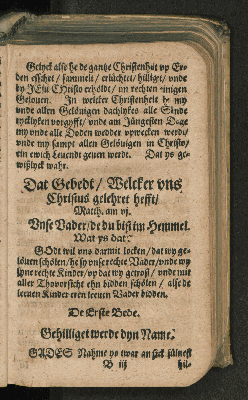 Gelyck alse he de gantze Christenheit vp Er-
den esschet / sammelt / erlüchtet / hilliget / vnde
by JEsu CHristo erhöldt / im rechten einigen
Gelouen. In welcker Christenheit he my
vnde allen Gelöuigen dachlykes alle Sünde
rycklyken vorgyfft / vnde am Jüngesten Dage
my vnde alle Doden wedder vpwecken werdt /
vnde my sampt allen Gelöuigen in Christo /
ein ewich Leuendt geuen werdt. Dat ys ge-
wißlyck wahr.
Dat Gebedt / Welcker vns
Christus gelehret hefft /
Matth. am vj.
Vnse Vader / de du bist im Hemmel.
Wat ys dat?
GOdt wil vns darmit locken / dat wy ge-
löuen schölen / he sy vnse rechte Vader / vnde wy
syne rechte Kinder / vp dat wy getrost / vnde mit
aller Thovorsicht ehn bidden schölen / alse de
leeuen Kinder eren leeuen Vader bidden.
De Erste Bede.
Gehilliget werde dyn Name.
GADES Nahme ys twar an sick süluest
B iij
hil-